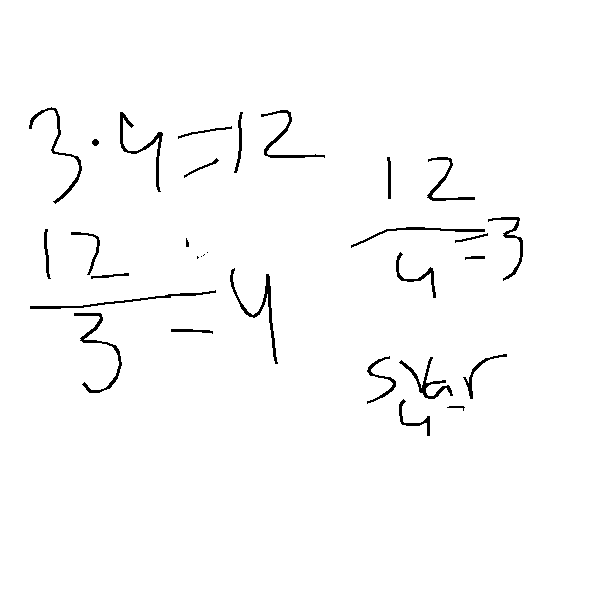 3·4=12
12/3=4
12/4=3
svar
4